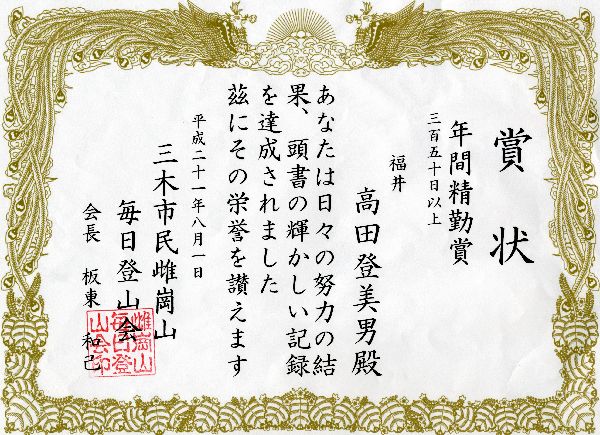 賞状
年間精勤賞
三百五十日以上
福井
高田登美男殿
あなたは日々の努力の結
果、頭書の輝かしい記録
を達成されました
茲にその栄誉を讃えます
平成二十一年八月一日
三木市民雌崗山
毎日登山会
会長 板東 和己
雌崗山
毎日登
山会印